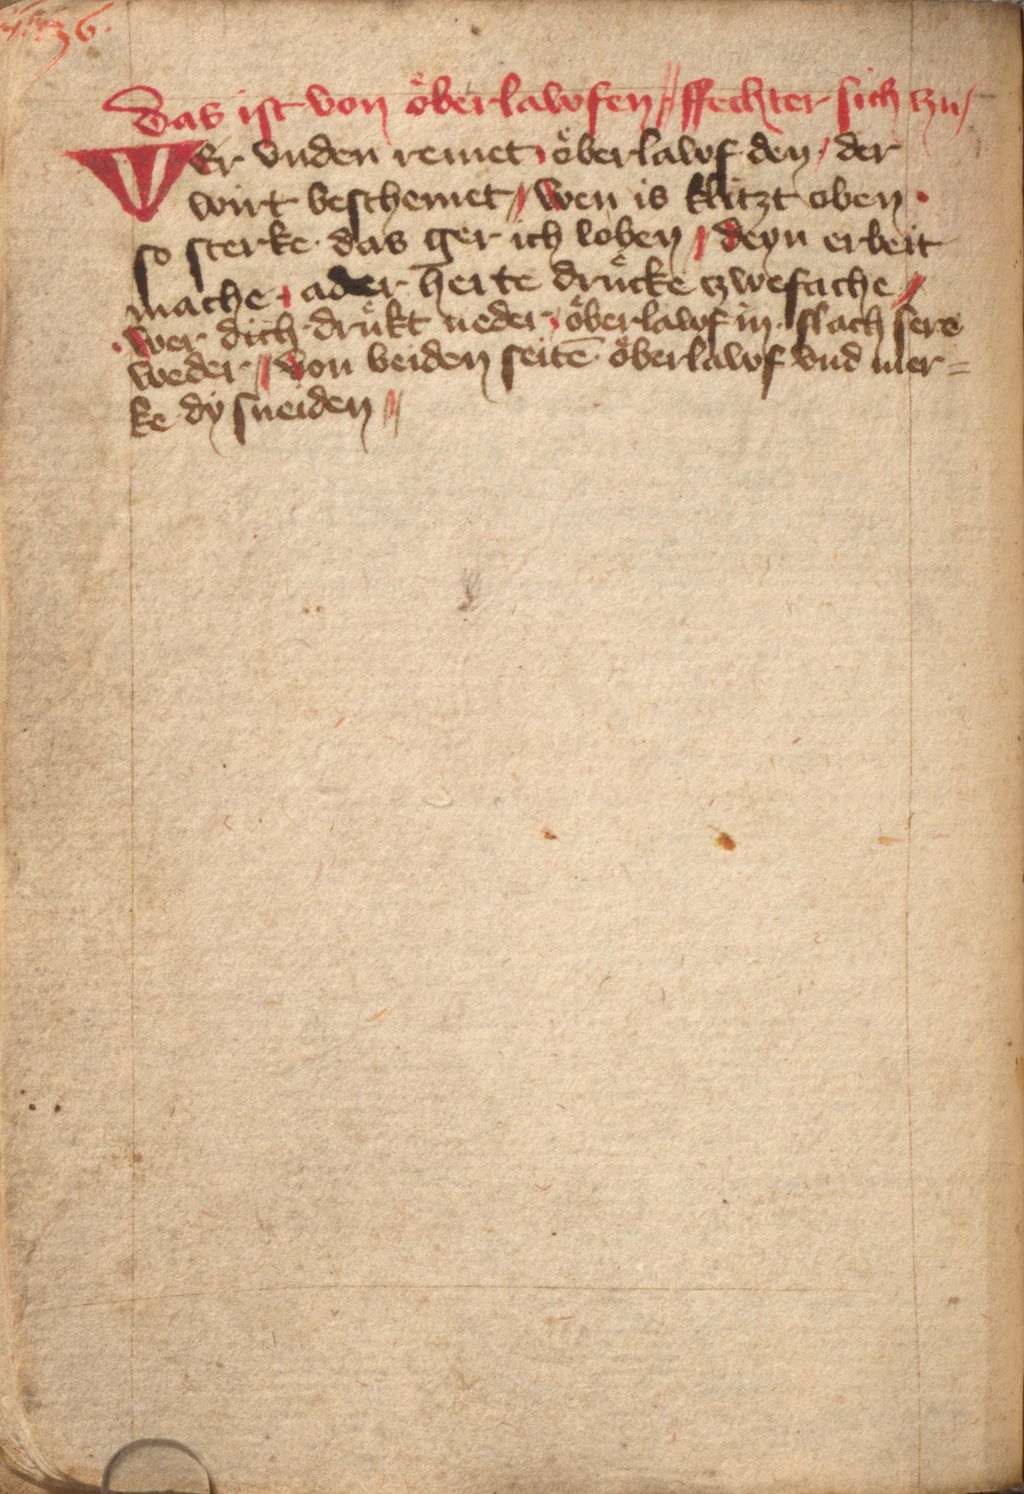 36.
Das ist von öberlawfen // ffechter sich czu /
Wer vnden remet / öberlawf den / der
wirt beschemet // Wen is klitzt oben .
so sterke . das ger ich loben / deyn erbeit
mache / ader herte drücke czwefache //
. wer dich drükt neder / öberlawf in . slach sere
weder // von beiden seitē öberlawf vnd mer=
ke dy sneiden //